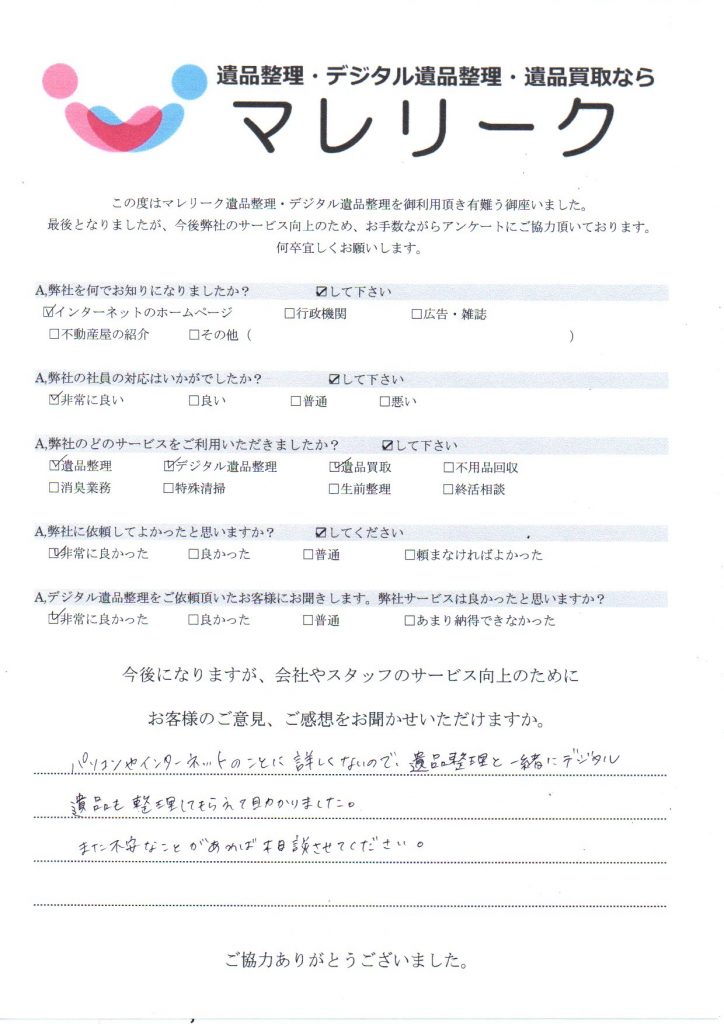 遺品整理・デジタル遺品整理・遺品買取なら
マレリーク
この度はマレリーク遺品整理・デジタル遺品整理を御利用頂き有難う御座いました。
最後となりましたが、今後弊社のサービス向上のため、お手数ながらアンケートにご協力頂いております。
何卒宜しくお願いします。
A,弊社を何でお知りになりましたか？ ☑して下さい
☑インターネットのホームページ □行政機関 □広告・雑誌
□不動産屋の紹介 □その他（ ）
A,弊社の社員の対応はいかがでしたか？ ☑して下さい
☑非常に良い □良い □普通 □悪い
A,弊社のどのサービスをご利用いただきましたか？ ☑して下さい
☑遺品整理 ☑デジタル遺品整理 ☑遺品買取 □不用品回収
□消臭業務 □特殊清掃 □生前整理 □終活相談
A,弊社に依頼してよかったと思いますか？ ☑してください
☑非常に良かった □良かった □普通 □頼まなければよかった
A,デジタル遺品整理をご依頼頂いたお客様にお聞きします。弊社サービスは良かったと思いますか？
☑非常に良かった □良かった □普通 □あまり納得できなかった
今後になりますが、会社やスタッフのサービス向上のために
お客様のご意見、ご感想をお聞かせいただけますか。
パソコンやインターネットのことに詳しくないので、遺品整理と一緒にデジタル
遺品も整理してもらえて助かりました。
また不安なことがあれば相談させてください。
ご協力ありがとうございました。